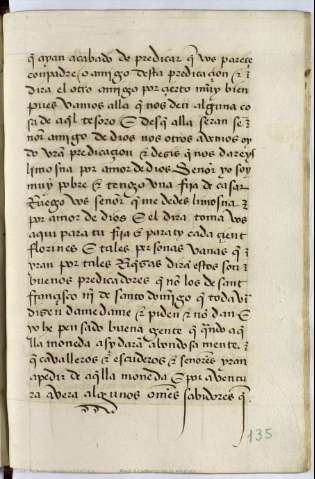 q̃ ayan acabado de predicar q̃ vos parece
conpadre o amigo desta predicaçion ⁊ ĩ
dira el otro amigo por çierto muy bien
pues vamos alla q̃ nos den alguna co
sa de aq̃l tesoro E desq̃ alla seran se
nor amigo de dios nos otros avemos oy
do vr̃a predicaçion ⁊ degis q̃ nos dareys
limosna por amor de dios Señor yo soy
muy pobre ⁊ tengo vna fija de casar
Ruego vos senor q̃ me dedes limosna
por amor de dios E el dira toma vos
aqui para tu fija ⁊ para ty cada çient
florines E tales personas vanas q̃
yran por tales Riq̃sas dirã estos son
buenos predicadores q̃ nõ los de sant
françisco nĩ de santo domigo q̃ toda vĩ
disen dame dame ⁊ piden ⁊ nõ dan E
yo he pensado buena gente q̃ qñdo aq̃
lla moneda asy darã abondosamente
q̃ cavalleros ⁊ escuderos ⁊ senores yran
a pedir de aq̃lla moneda E por aventu
ra avera algunos om̃es sabidores q̃
135